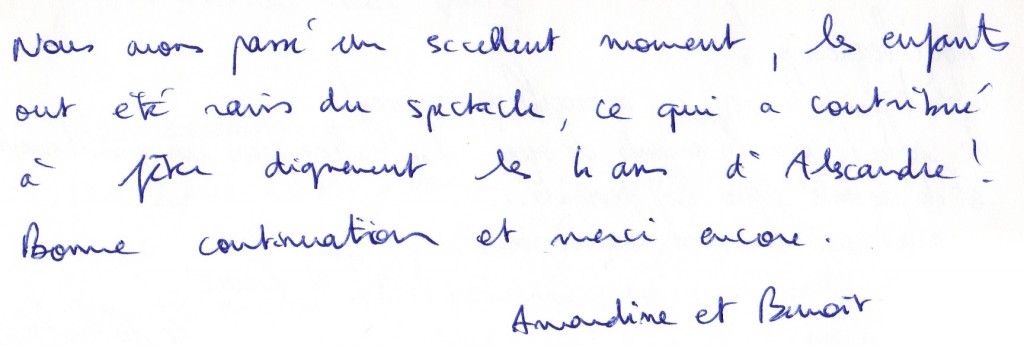 Nous avons passé un excellent moment, les enfants
ont été ravis du spectacle, ce qui a contribué
à fêter dignement les 4 ans d'Alexandre !
Bonne continuation et merci encore.
Amandine et Benoît